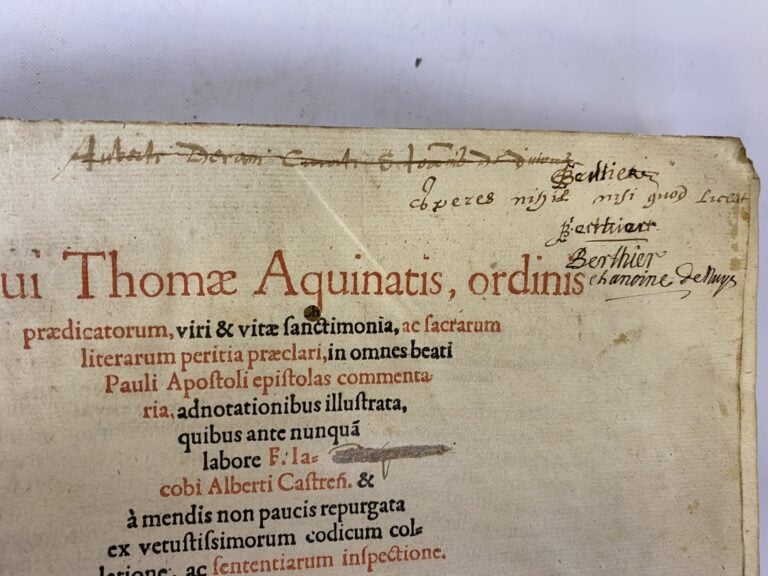 Berthier
nihil nisi quod licet
Berthier
Berthier
chanoine de Nuys
ui Thomæ Aquinatis, ordinis
prædicatorum, viri & vitæ ſanctimonia, ac ſacrarum
literarum peritia præclari, in omnes beati
Pauli Apoſtoli epiſtolas commenta-
ria, adnotationibus illuſtrata,
quibus ante nunquã
labore F. Ia=
cobi Alberti Caſtreñ. &
à mendis non paucis repurgata
ex vetuſtiſsimorum codicum col=
latione, ac ſententiarum inſpectione.